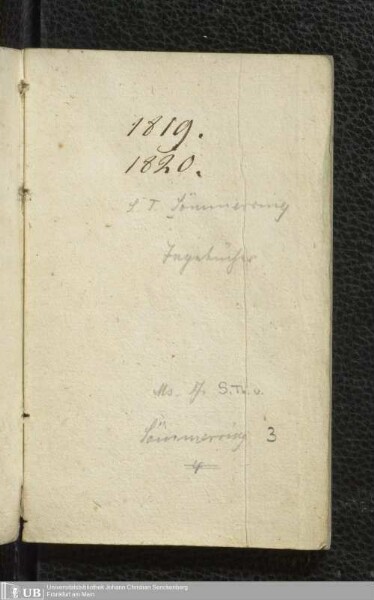 1819.
1820.
S. T. Sömmerring
Tagebücher
Ms. Ff. S. Th. v.
Sömmerring 3
4
UB Universitätsbibliothek Johann Christian Senckenberg
Frankfurt am Main